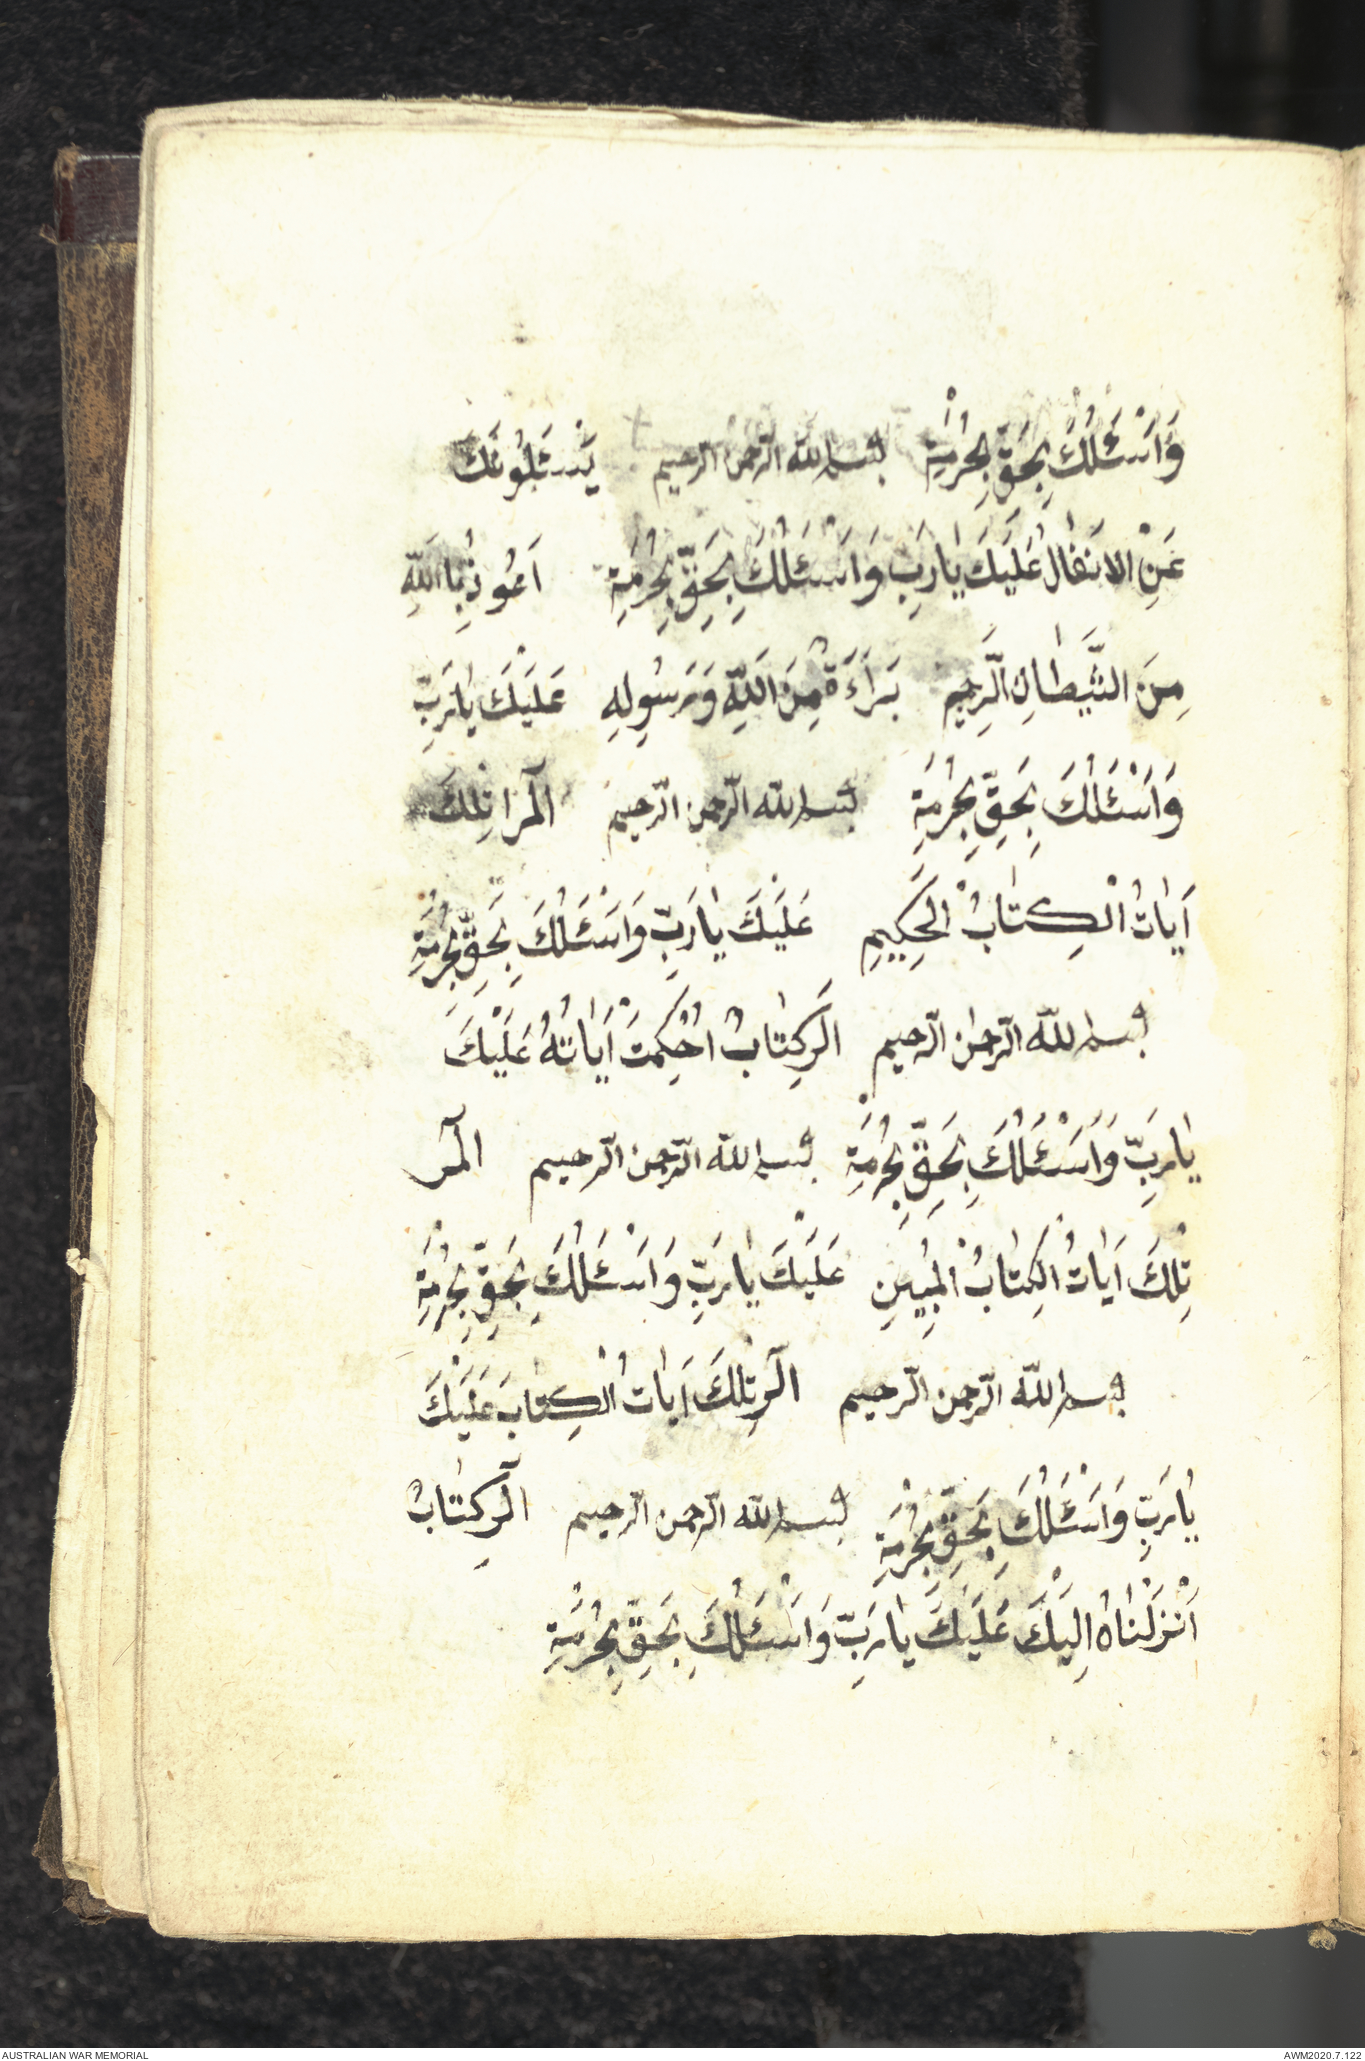 وَاَسْئَلُكَ بِحَقِّ بِحُرْمَةِ بسم الله الرحمن الرحيم يَسْئَلُونَكَ
عَنِ الْاَنفٰالِ عَلَيْكَ يٰارَبِّ وَاَسْئَلُكَ بِحَقِّ بِحُرْمَةِ اَعُوذُ بِااللّٰهِ
مِنَ الشَّيْطٰانِ الَّرجِيِم بَرٰاءَةٌ مِنَ اللّٰهِ وَرَسُولِهِ عَلَيْكَ يٰارَبِّ
وَاَسْئَلُكَ بِحَقِّ بِحُرْمَةِ بسم الله الرحمن الرحيم الٓمرا تِلْكَ
اٰيٰاتُ الْكِتٰابُ الْحَكِيمِ عَلَيْكَ يٰارَبِّ وَاَسْئَلُكَ بِحَقِّ بِحُرْمَةِ
بسم الله الرحمن الرحيم الٓر كِتٰابٌ اُحْكِمَتْ اٰيٰاتُهُ عَلَيْكَ
يٰارَبِّ وَاَسْئَلُكَ بِحَقِّ بِحُرْمَةِ بسم الله الرحمن الرحيم الٓمر
تِلْكَ اٰيٰاتُ الْكِتٰابُ الْمُبِينِ عَلَيْكَ يٰارَبِّ وَاَسْئَلُكَ بِحَقِّ بِحُرْمَةِ
بسم الله الرحمن الرحيم الٓر تِلْكَ اٰيٰاتُ الْكِتٰابَ عَلَيْكَ
يٰارَبِّ وَاَسْئَلُكَ بِحَقِّ بِحُرْمَةِ بسم الله الرحمن الرحيم الٓر كِتٰابٌ
اَنْزَلْنٰاهُ اِلَيْكَ عَلَيْكَ يٰارَبِّ وَاَسْئَلُكَ بِحَقِّ بِحُرْمَةِ
AUSTRALIAN WAR MEMORIAL AWM2020.7.122